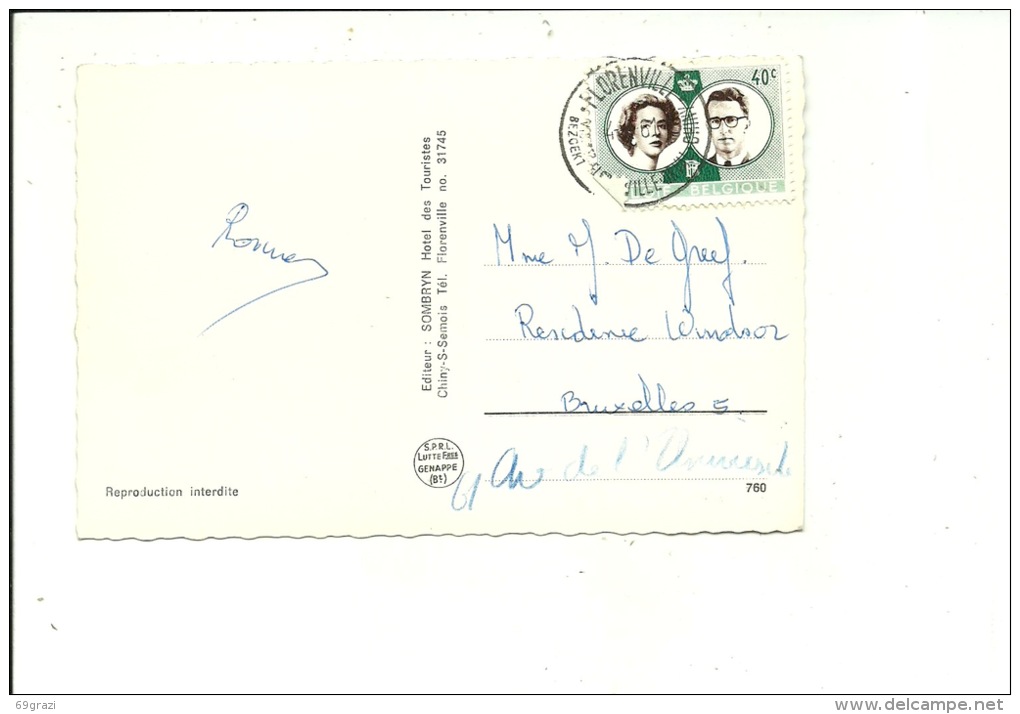 FLORENVILLE
BEZOEKT
40c
BELGIQUE
Editeur : SOMBRYN Hotel des Touristes
Chiny-S-Semois Tél. Florenville no. 31745
Mme J. De Greef.
Residence Windsor
Bruxelles 5
61 Av de l'
S.P.R.L.
LUTTE FRES
GENAPPE
(Bt)
Reproduction interdite
760
69grazi
www.delcampe.net